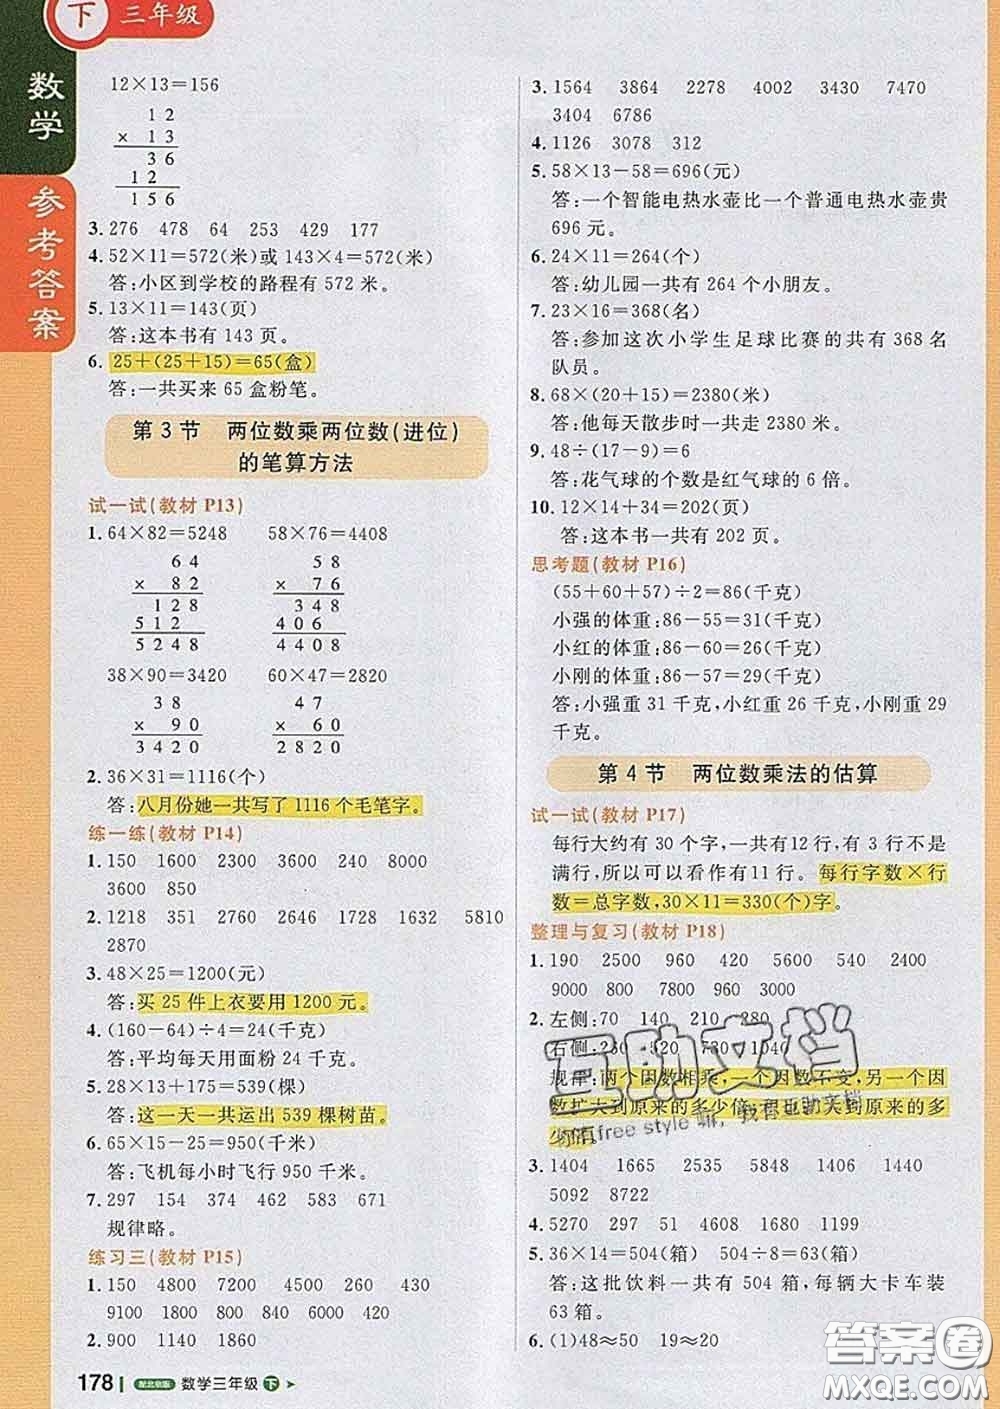 下 三年级
数学
参考答案
12×13=156
1 2
× 1 3
3 6
1 2
1 5 6
3. 276 478 64 253 429 177
4. 52×11=572(米)或 143×4=572(米)
答:小区到学校的路程有 572 米。
5. 13×11=143(页)
答:这本书有 143 页。
6. 25+(25+15)=65(盒)
答:一共买来 65 盒粉笔。
第 3 节 两位数乘两位数(进位)
的笔算方法
试一试(教材 P13)
1. 64×82=5248 58×76=4408
6 4 5 8
× 8 2 × 7 6
1 2 8 3 4 8
5 1 2 4 0 6
5 2 4 8 4 4 0 8
38×90=3420 60×47=2820
3 8 4 7
× 9 0 × 6 0
3 4 2 0 2 8 2 0
2. 36×31=1116(个)
答:八月份她一共写了 1116 个毛笔字。
练一练(教材 P14)
1. 150 1600 2300 3600 240 8000
3600 850
2. 1218 351 2760 2646 1728 1632 5810
2870
3. 48×25=1200(元)
答:买 25 件上衣要用 1200 元。
4. (160-64)÷4=24(千克)
答:平均每天用面粉 24 千克。
5. 28×13+175=539(棵)
答:这一天一共运出 539 棵树苗。
6. 65×15-25=950(千米)
答:飞机每小时飞行 950 千米。
7. 297 154 374 462 583 671
规律略。
练习三(教材 P15)
1. 150 4800 7200 4500 260 430
9100 1800 800 6000 680
2. 900 1140 1860
3. 1564 3864 2278 4002 3430 7470
3404 6786
4. 1126 3078 312
5. 58×13-58=696(元)
答:一个智能电热水壶比一个普通电热水壶贵
696 元。
6. 24×11=264(个)
答:幼儿园一共有 264 个小朋友。
7. 23×16=368(名)
答:参加这次小学生足球比赛的共有 368 名
队员。
8. 68×(20+15)=2380(米)
答:他每天散步时一共走 2380 米。
9. 48÷(17-9)=6
答:花气球的个数是红气球的 6 倍。
10. 12×14+34=202(页)
答:这本书一共有 202 页。
思考题(教材 P16)
(55+60+57)÷2=86(千克)
小强的体重:86-55=31(千克)
小红的体重:86-60=26(千克)
小刚的体重:86-57=29(千克)
答:小强重 31 千克,小红重 26 千克,小刚重 29
千克。
第 4 节 两位数乘法的估算
试一试(教材 P17)
每行大约有 30 个字,一共有12 行,有 3 行不是
满行,所以可以看作有11 行。每行字数×行
数=总字数,30×11=330(个)字。
整理与复习(教材 P18)
1. 190 2500 960 420 5600 540 2400
9000 800 7800 960 3000
2. 左侧:70 140 210 280
右侧:260 520 730 1040
规律:两个因数相乘,一个因数不变,另一个因
数扩大到原来的多少倍,积也扩大到原来的多
少倍。
3. 1404 1665 2535 5848 1406 1440
5092 8722
4. 5270 297 51 4260 1020 1199
5. 36×14=504(箱) 504÷8=63(箱)
答:这批饮料一共有 504 箱,每辆大卡车装
63 箱。
6. (1)48≈50 19≈20
178 配北京版 数学三年级 下
互助文档
free style 嘛,我有互助文档
答案圈
MXQE.COM